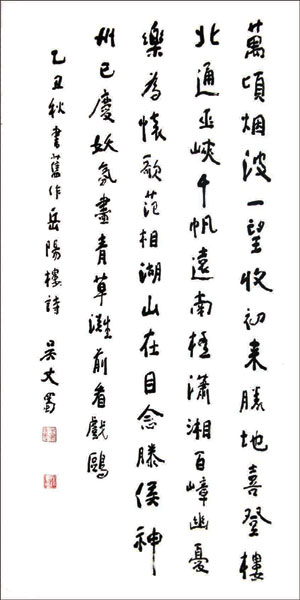 萬頃烟波一望收初来勝地喜登樓
北通巫峽千帆遠南極瀟湘百嶂幽憂
樂為懷歌范相湖山在目念滕侯神
州已慶妖氛盡青草灘前看戲鷗
乙丑秋書舊作岳陽樓詩 吴丈蜀